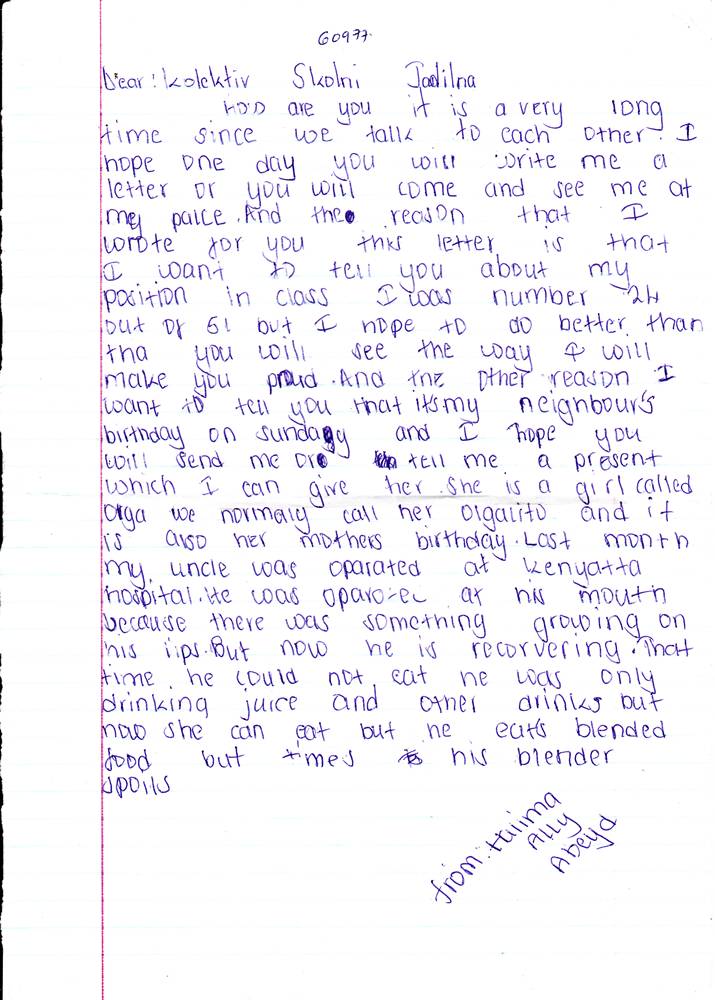 60977.
Dear: Kolektiv Skolni Jadilna
are you it is a very long
time since we talk to each other. I
hope one day you will write me a
letter or you will come and see me at
my palce. And the reason that I
wrote for you this letter is that
I want to tell you about my
position in class I was number 24
out of 61 but I hope to do better than
tha you will see the way I will
make you proud. And the other reason I
want to tell you that it's my neighbour's
birthday on sunday and I hope you
will send me or tell me a present
which I can give her. She is a girl called
Olga we normaly call her Olgalito and it
is also her mothers birthday. Last month
my uncle was oparated at Kenyatta
hospital. He was oparated at his mouth
because there was something growing on
his lips. But now he is recorvering. That
time he could not eat he was only
drinking juice and other drinks but
now she can eat but he eats blended
food but times his blender
spoils
from: Halima
Ally
Abeyd